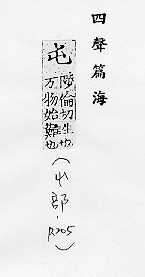 四聲篇海
屯
陟倫切生也
万物始難也
(屮部.P.205)